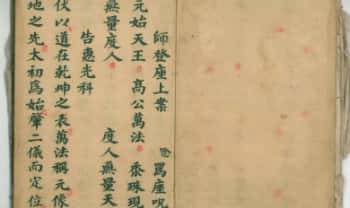 師登座上案 罵座呪
元始天王 高公萬法 黍珠現
無量度人 度人無量天
告惠光科
伏以道在乾坤之表萬法稱元像
地之先太初爲始肇二儀而定位